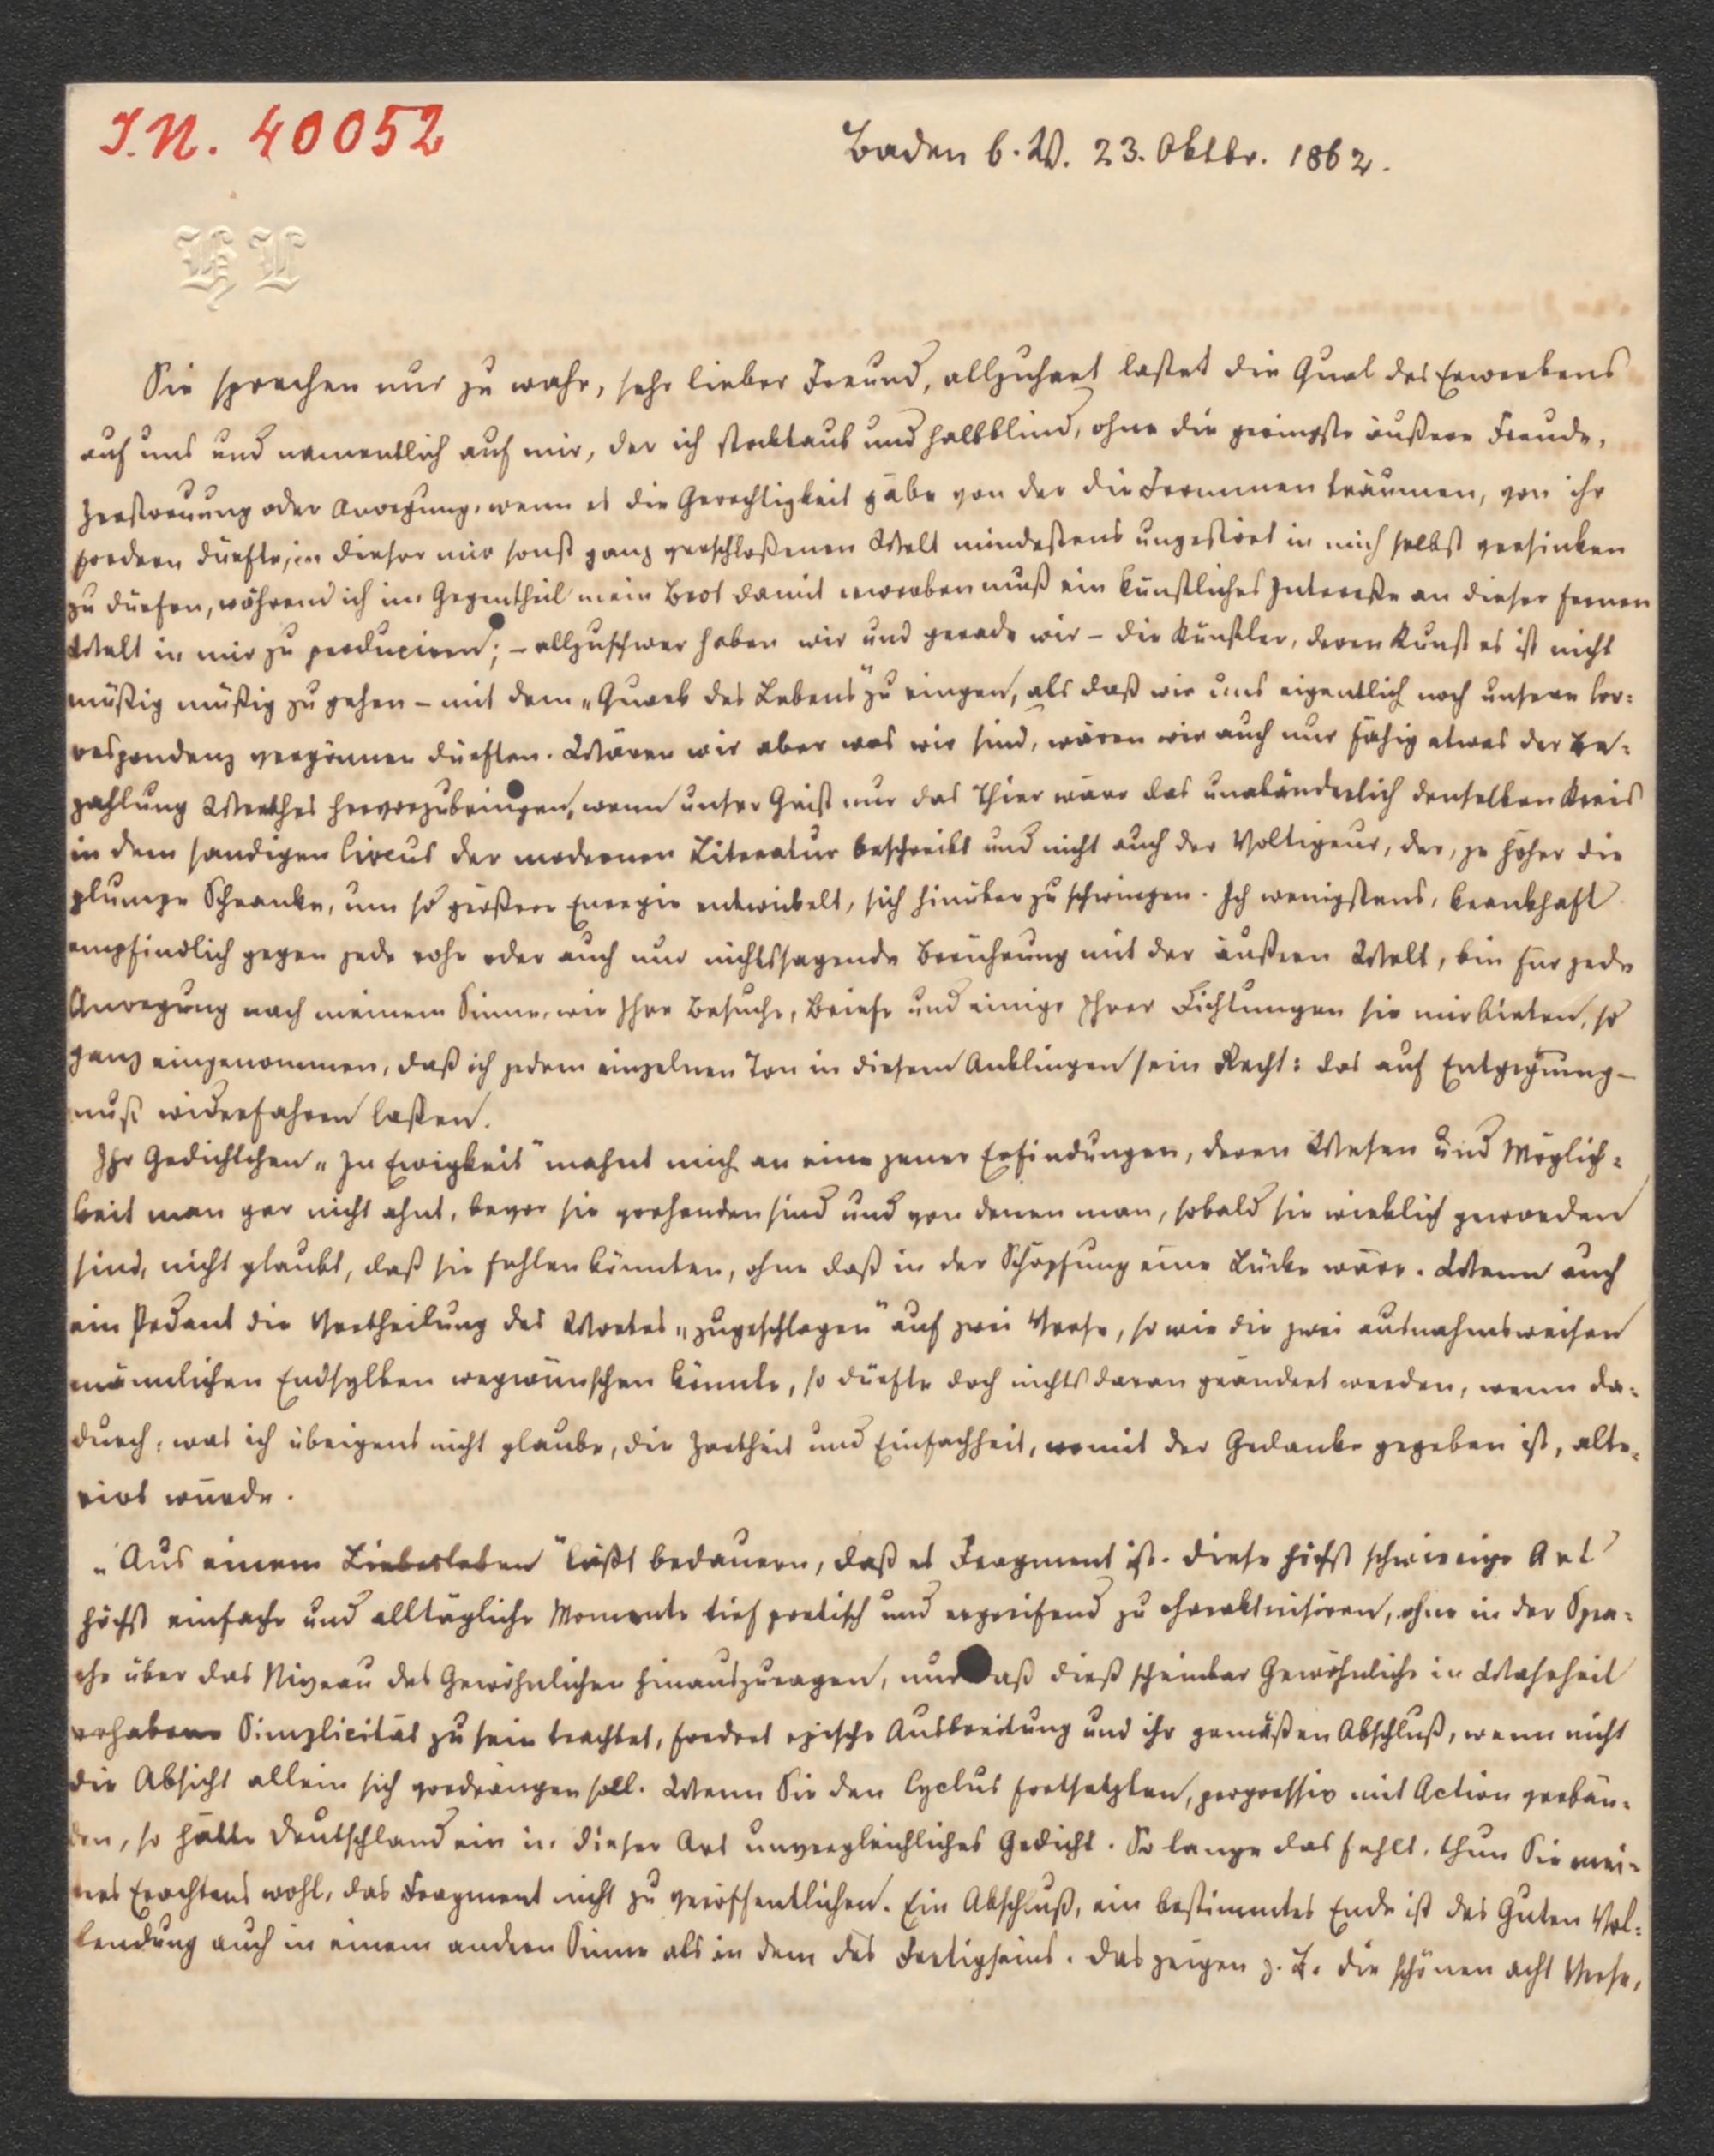 I.N. 40052
Baden b. W. 23. Oktbr. 1862.
HL
Sie sprachen nur zu wahr, sehr lieber Freund, allzuhart lastet die Qual des Erwerbens
auf uns und namentlich auf mir, der ich stocktaub und halbblind, ohne die geringste äußere Freude,
Zerstreuung oder Anregung, wenn es die Gerechtigkeit gäbe von der die Frommen träumen, von ihr
fordern dürfte, in dieser mir sonst ganz verschloßenen Welt mindestens ungestört in mich selbst versinken
zu dürfen, während ich im Gegentheil mein Brot damit erwerben muß ein künstliches Intereße an dieser fernen
Welt in mir zu produciren; – allzuschwer haben wir und gerade wir – die Künstler, deren Kunst es ist nicht
müßig müßig zu gehen – mit dem „Quark des Lebens" zu ringen, als daß wir uns eigentlich noch unsere Cor=
respondenz vergönnen dürften. Wären wir aber was wir sind, wären wir auch nur fähig etwas der Be=
zahlung Werthes hervorzubringen, wenn unser Geist nur das Thier wäre das unabänderlich denselben Kreis
in dem sandigen Circus der modernen Literatur beschreibt und nicht auch der Voltigeur, der, je höher die
plumpe Schranke, um so größere Energie entwickelt, sich hinüber zu schwingen. Ich wenigstens, krankhaft
empfindlich gegen jede rohe oder auch nur nichtssagende Berührung mit der äußern Welt, bin für jede
Anregung nach meinem Sinne, wie Ihre Besuche, Briefe und einige Ihrer Dichtungen sie mir bieten, so
ganz eingenommen, daß ich jedem einzelnen Ton in diesem Anklingen sein Recht: das auf Entgegnung –
muß widerfahren laßen.
Ihr Gedichtchen „In Ewigkeit" mahnt mich an eine jener Erfindungen, deren Wesen und Möglich=
keit man gar nicht ahnt, bevor sie vorhanden sind und von denen man, sobald sie wirklich geworden
sind, nicht glaubt, daß sie fehlen könnten, ohne daß in der Schöpfung eine Lücke wäre. Wenn auch
ein Pedant die Vertheilung des Wortes „zugeschlagen" auf zwei Verse, so wie die zwei ausnahmsweisen
männlichen Endsylben wegwünschen könnte, so dürfte doch nichts daran geändert werden, wenn da=
durch, was ich übrigens nicht glaube, die Zartheit und Einfachheit, womit der Gedanke gegeben ist, alte=
rirt würde.
„Aus einem Liebesleben" läßt bedauern, daß es Fragment ist. Diese höchst schwierige Art
höchst einfache und alltägliche Momente tief poetisch und ergreifend zu charakterisiren, ohne in der Spra=
che über das Niveau des Gewöhnlichen hinauszuragen, nur daß dieß scheinbar Gewöhnliche in Wahrheit
erhabene Simplicität zu sein trachtet, fordert epische Ausbreitung und ihr gemäßen Abschluß, wenn nicht
die Absicht allein sich vordrängen soll. Wenn Sie den Cyclus fortsetzten, progressiv mit Action verbän=
den, so hätte Deutschland ein in dieser Art unvergleichliches Gedicht. So lange das fehlt, thun Sie mei=
nes Erachtens wohl, das Fragment nicht zu veröffentlichen. Ein Abschluß, ein bestimmtes Ende ist des Guten Vol=
lendung auch in einem andern Sinne als in dem des Fertigseins. Das zeigen z. B. die schönen acht Verse,